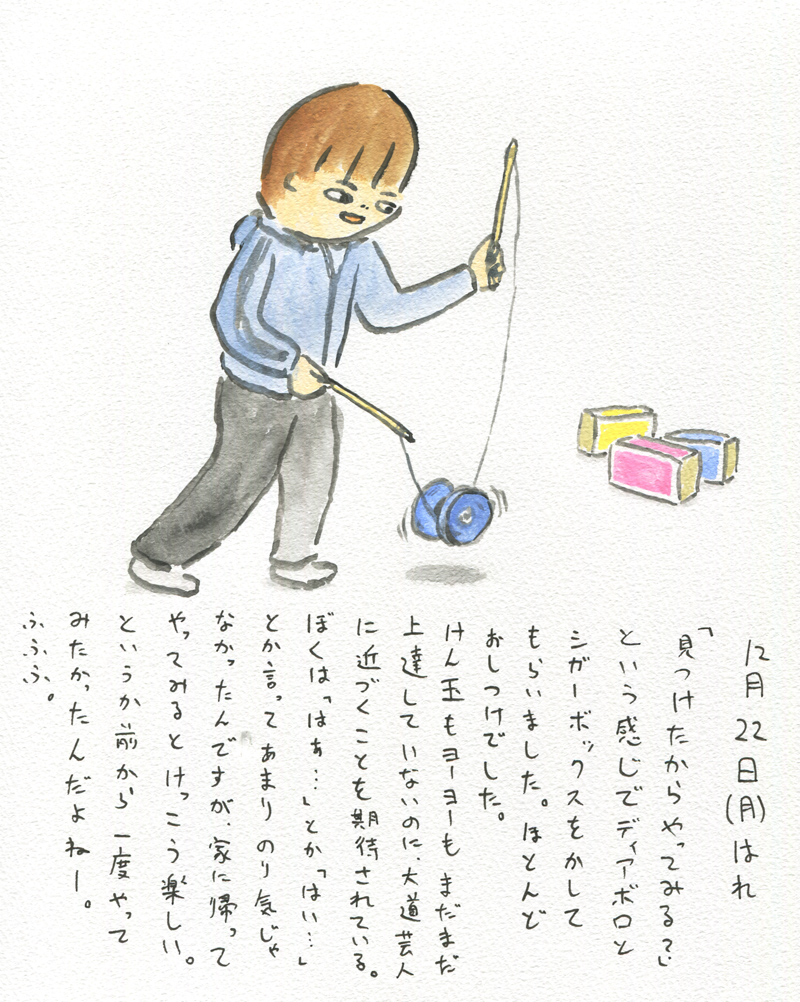 12月22日(月)はれ
「見つけたからやってみる?」
という感じでディアボロと
シガーボックスをかして
もらいました。ほとんど
おしつけでした。
けん玉もヨーヨーもまだまだ
上達していないのに、大道芸人
に近づくことを期待されている。
ぼくは「はぁ…」とか「はい…」
とか言ってあまりのり気じゃ
なかったんですが、家に帰って
やってみるとけっこう楽しい。
というか前から一度やって
みたかったんだよねー。
ふふふ。